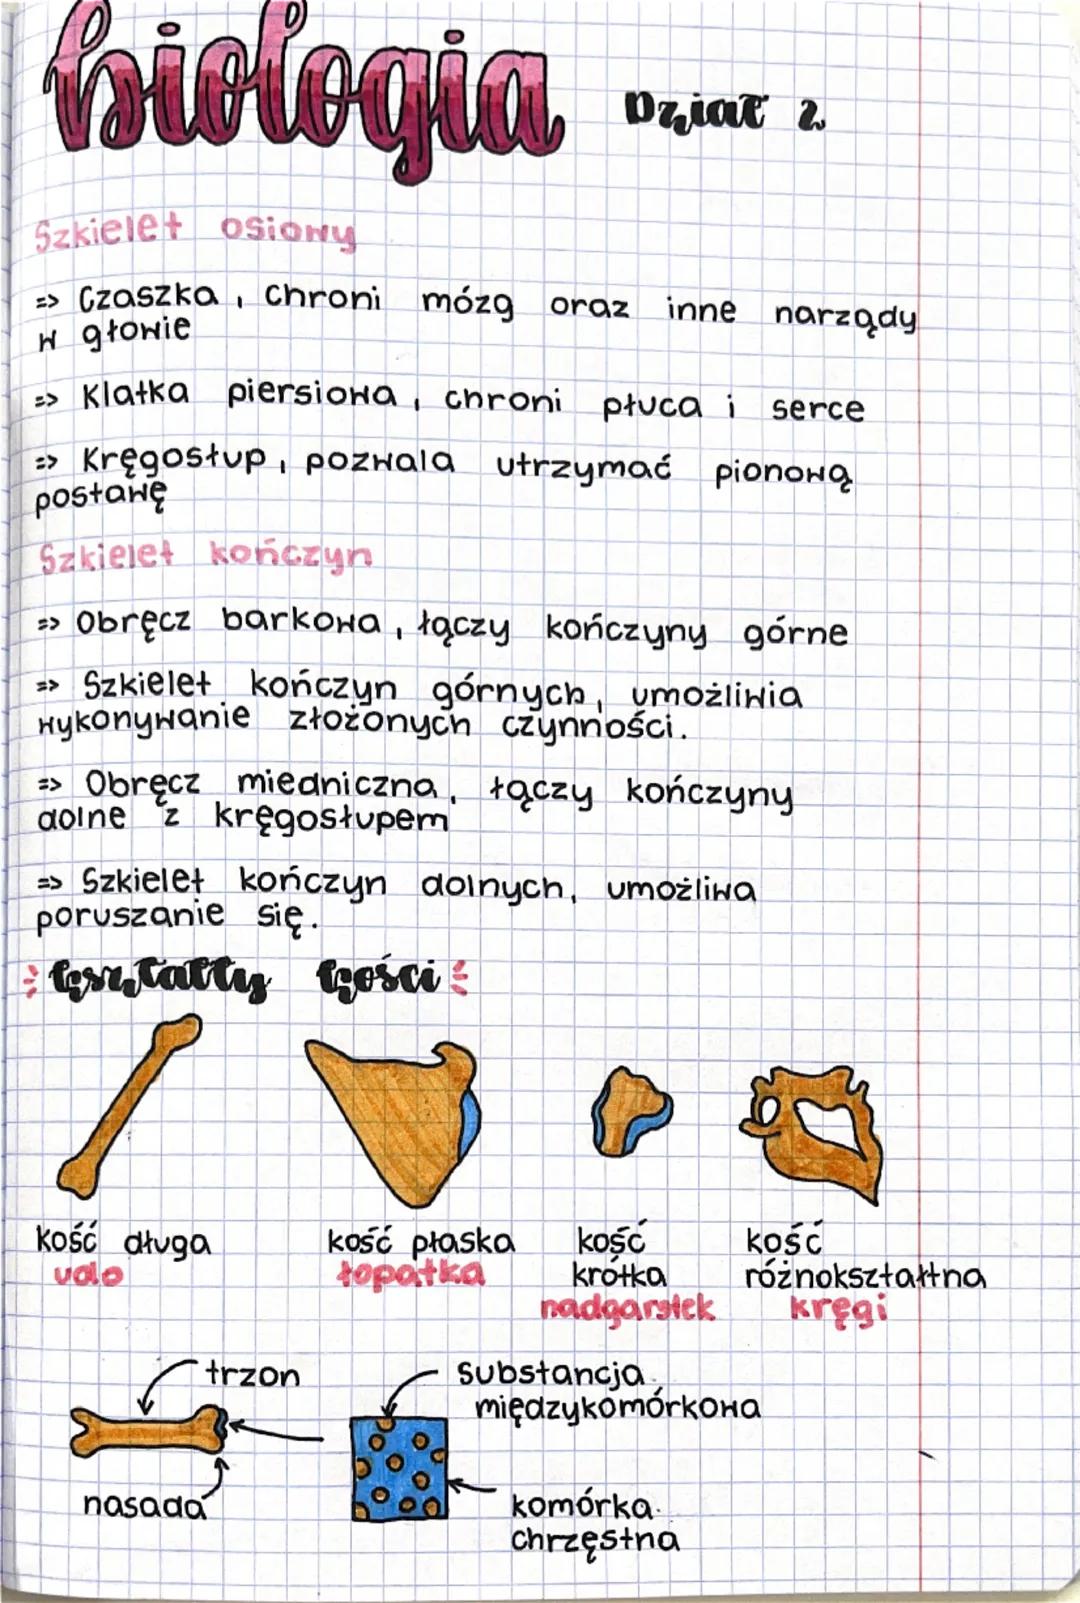 biologia Dział 2
Szkielet osiowy
=> Czaszka, chroni mózg oraz inne narządy
w głowie
=> Klatka piersiowa, chroni płuca i serce
=> Kręgosłup, pozwala utrzymać pionową
postawę
Szkielet kończyn
=> Obręcz barkowa, łączy kończyny górne
=> Szkielet kończyn górnych, umożliwia
wykonywanie złożonych czynności.
=> Obręcz miedniczna, łączy kończyny
dolne z kręgosłupem
=> Szkielet kończyn dolnych, umożliwa
poruszanie się.
kształty kości
kość długa
udo
kość płaska
łopatka
kość
krótka
nadgarstek
kość
różnokształtna
kręgi
trzon
nasada
substancja
międzykomórkowa
komórka
chrzęstna